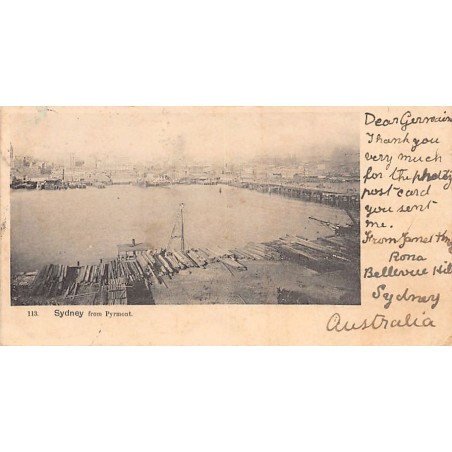 Dear Germain
Thank you
very much
for the photo
post card
you sent
me.
From Janet
Rona
Bellevue Hill
Sydney
Australia
115. Sydney from Pyrmont.